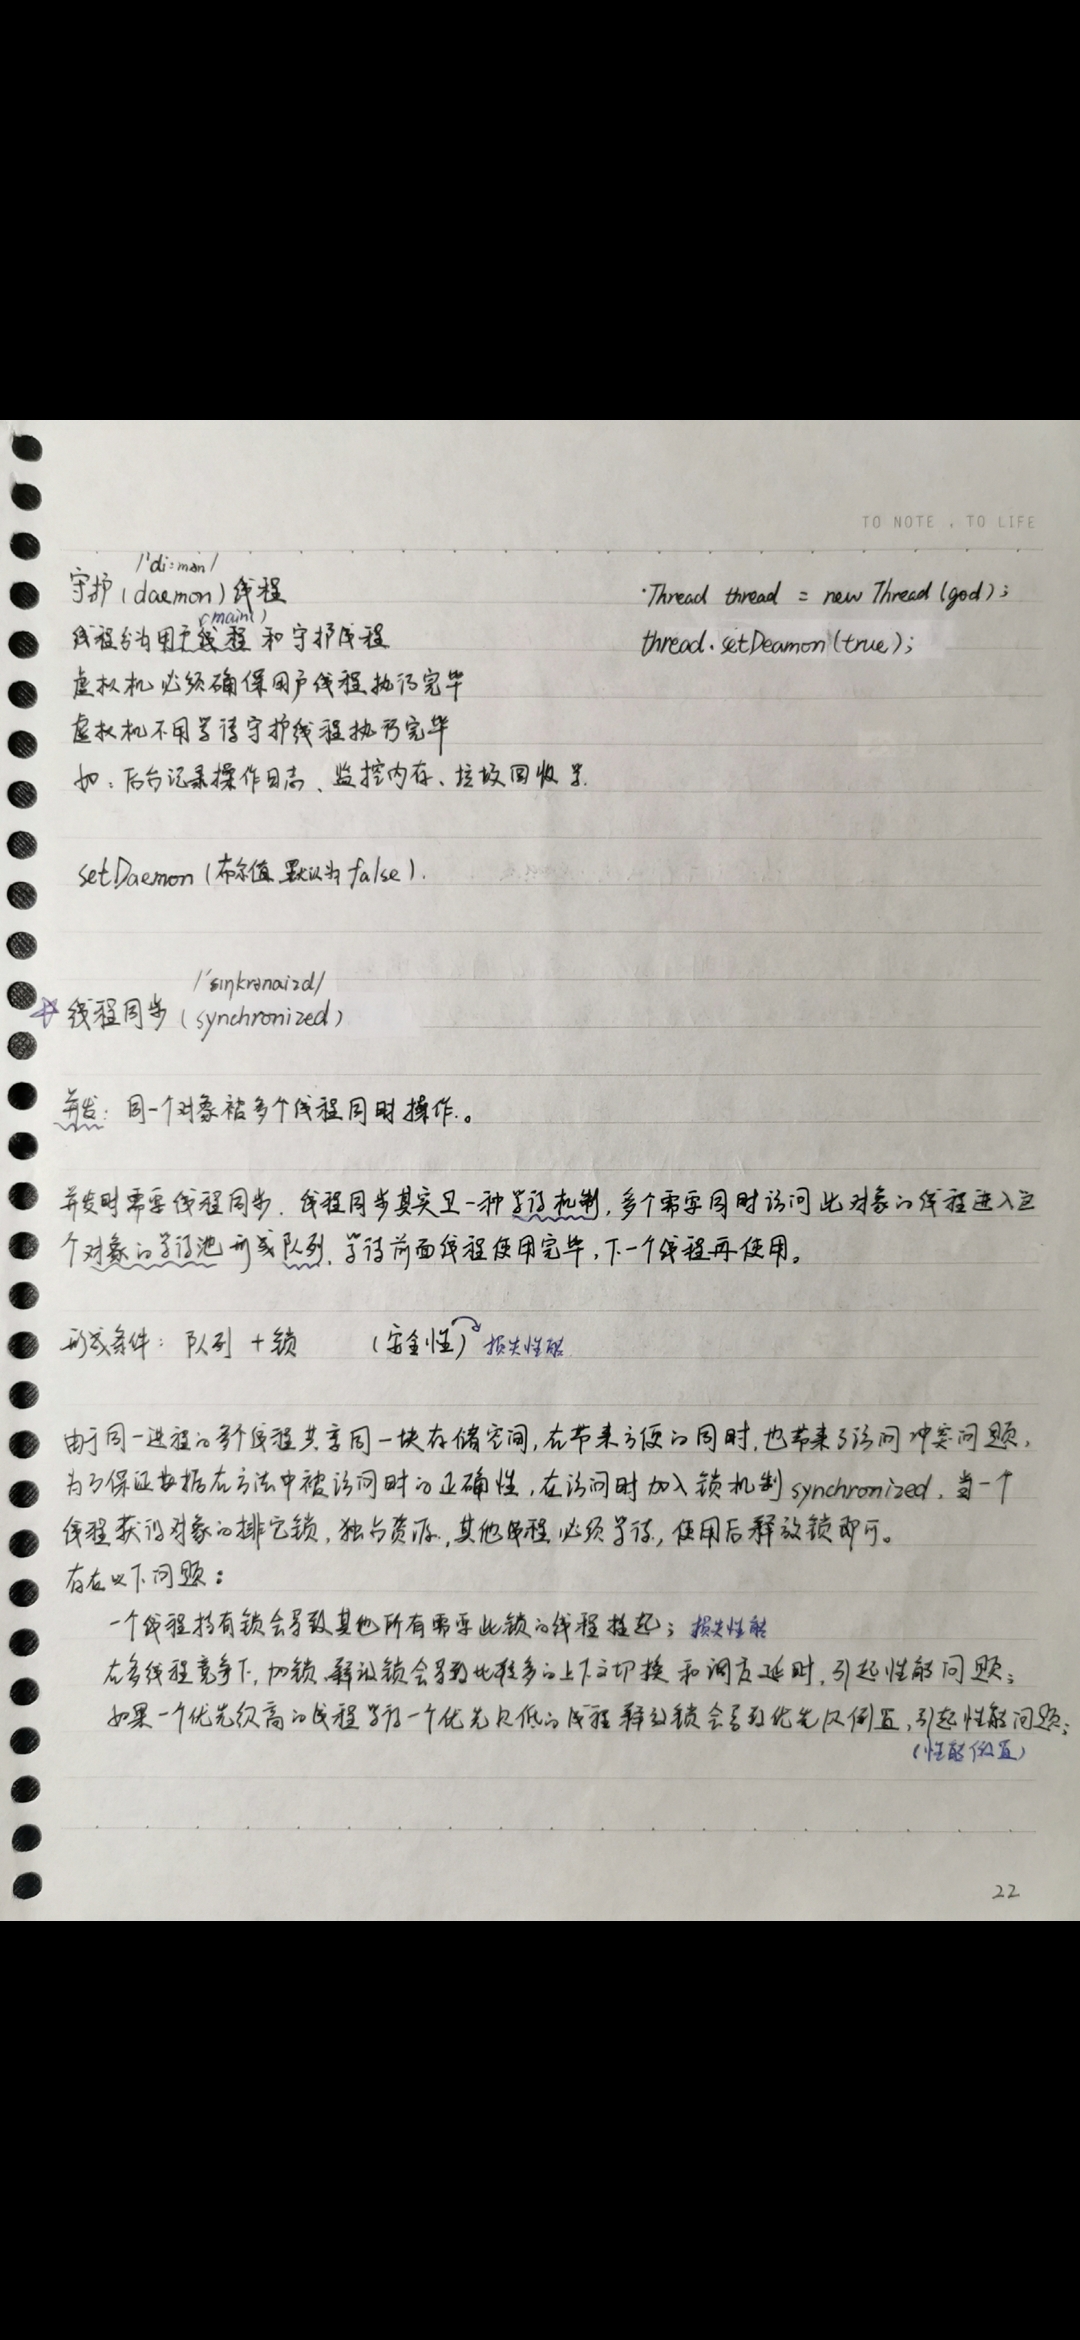 TO NOTE , TO LIFE
/'di:mən/
守护(daemon)线程
Thread thread = new Thread(god);
(main)
线程分为用户线程 和 守护线程
thread.setDeamon(true);
虚拟机必须确保用户线程执行完毕
虚拟机不用等待守护线程执行完毕
如:后台记录操作日志、监控内存、垃圾回收等.
setDaemon(布尔值 默认为false).
/'sɪŋkrənaizd/
线程同步(synchronized)
并发: 同一个对象被多个线程同时操作.。
并发时需要线程同步. 线程同步其实是一种等待机制, 多个需要同时访问此对象的线程进入这
个对象的等待池形成队列, 等待前面线程使用完毕, 下一个线程再使用。
形成条件: 队列 + 锁 (安全性) 损失性能
由于同一进程的多个线程共享同一块存储空间, 在带来方便的同时, 也带来了访问冲突问题,
为了保证数据在方法中被访问时的正确性, 在访问时加入锁机制synchronized, 当一个
线程获得对象的排它锁, 独占资源, 其他线程必须等待, 使用后释放锁即可。
存在以下问题:
一个线程持有锁会导致其他所有需要此锁的线程挂起; 损失性能
在多线程竞争下, 加锁, 释放锁会导致比较多的上下文切换和调度延时, 引起性能问题;
如果一个优先级高的线程等待一个优先级低的线程释放锁会导致优先级倒置, 引起性能问题;
(性能倒置)
22